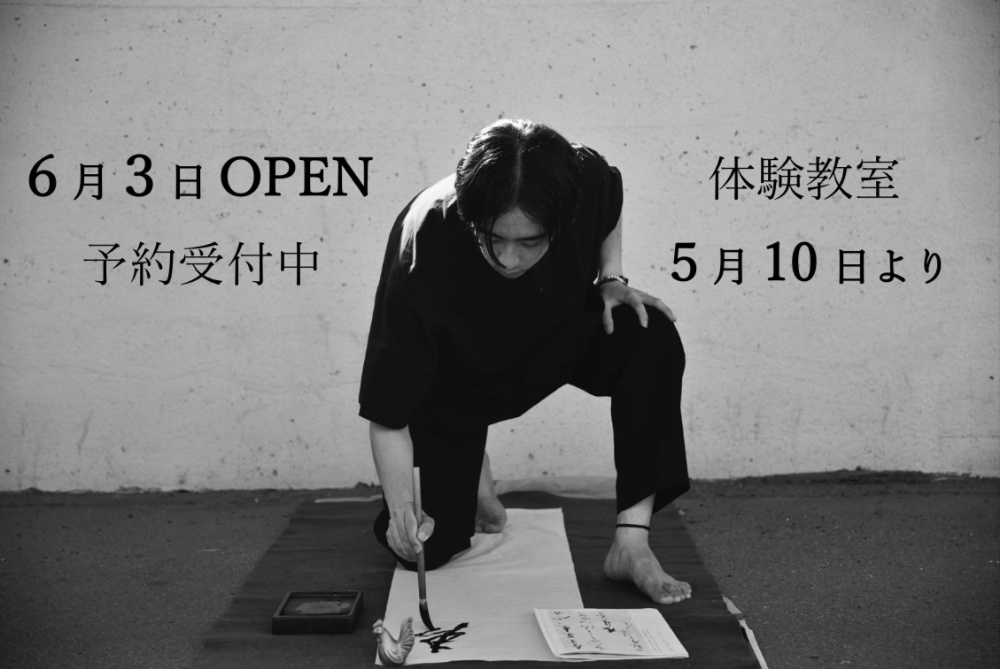 6月3日OPEN
予約受付中
体験教室
5月10日より